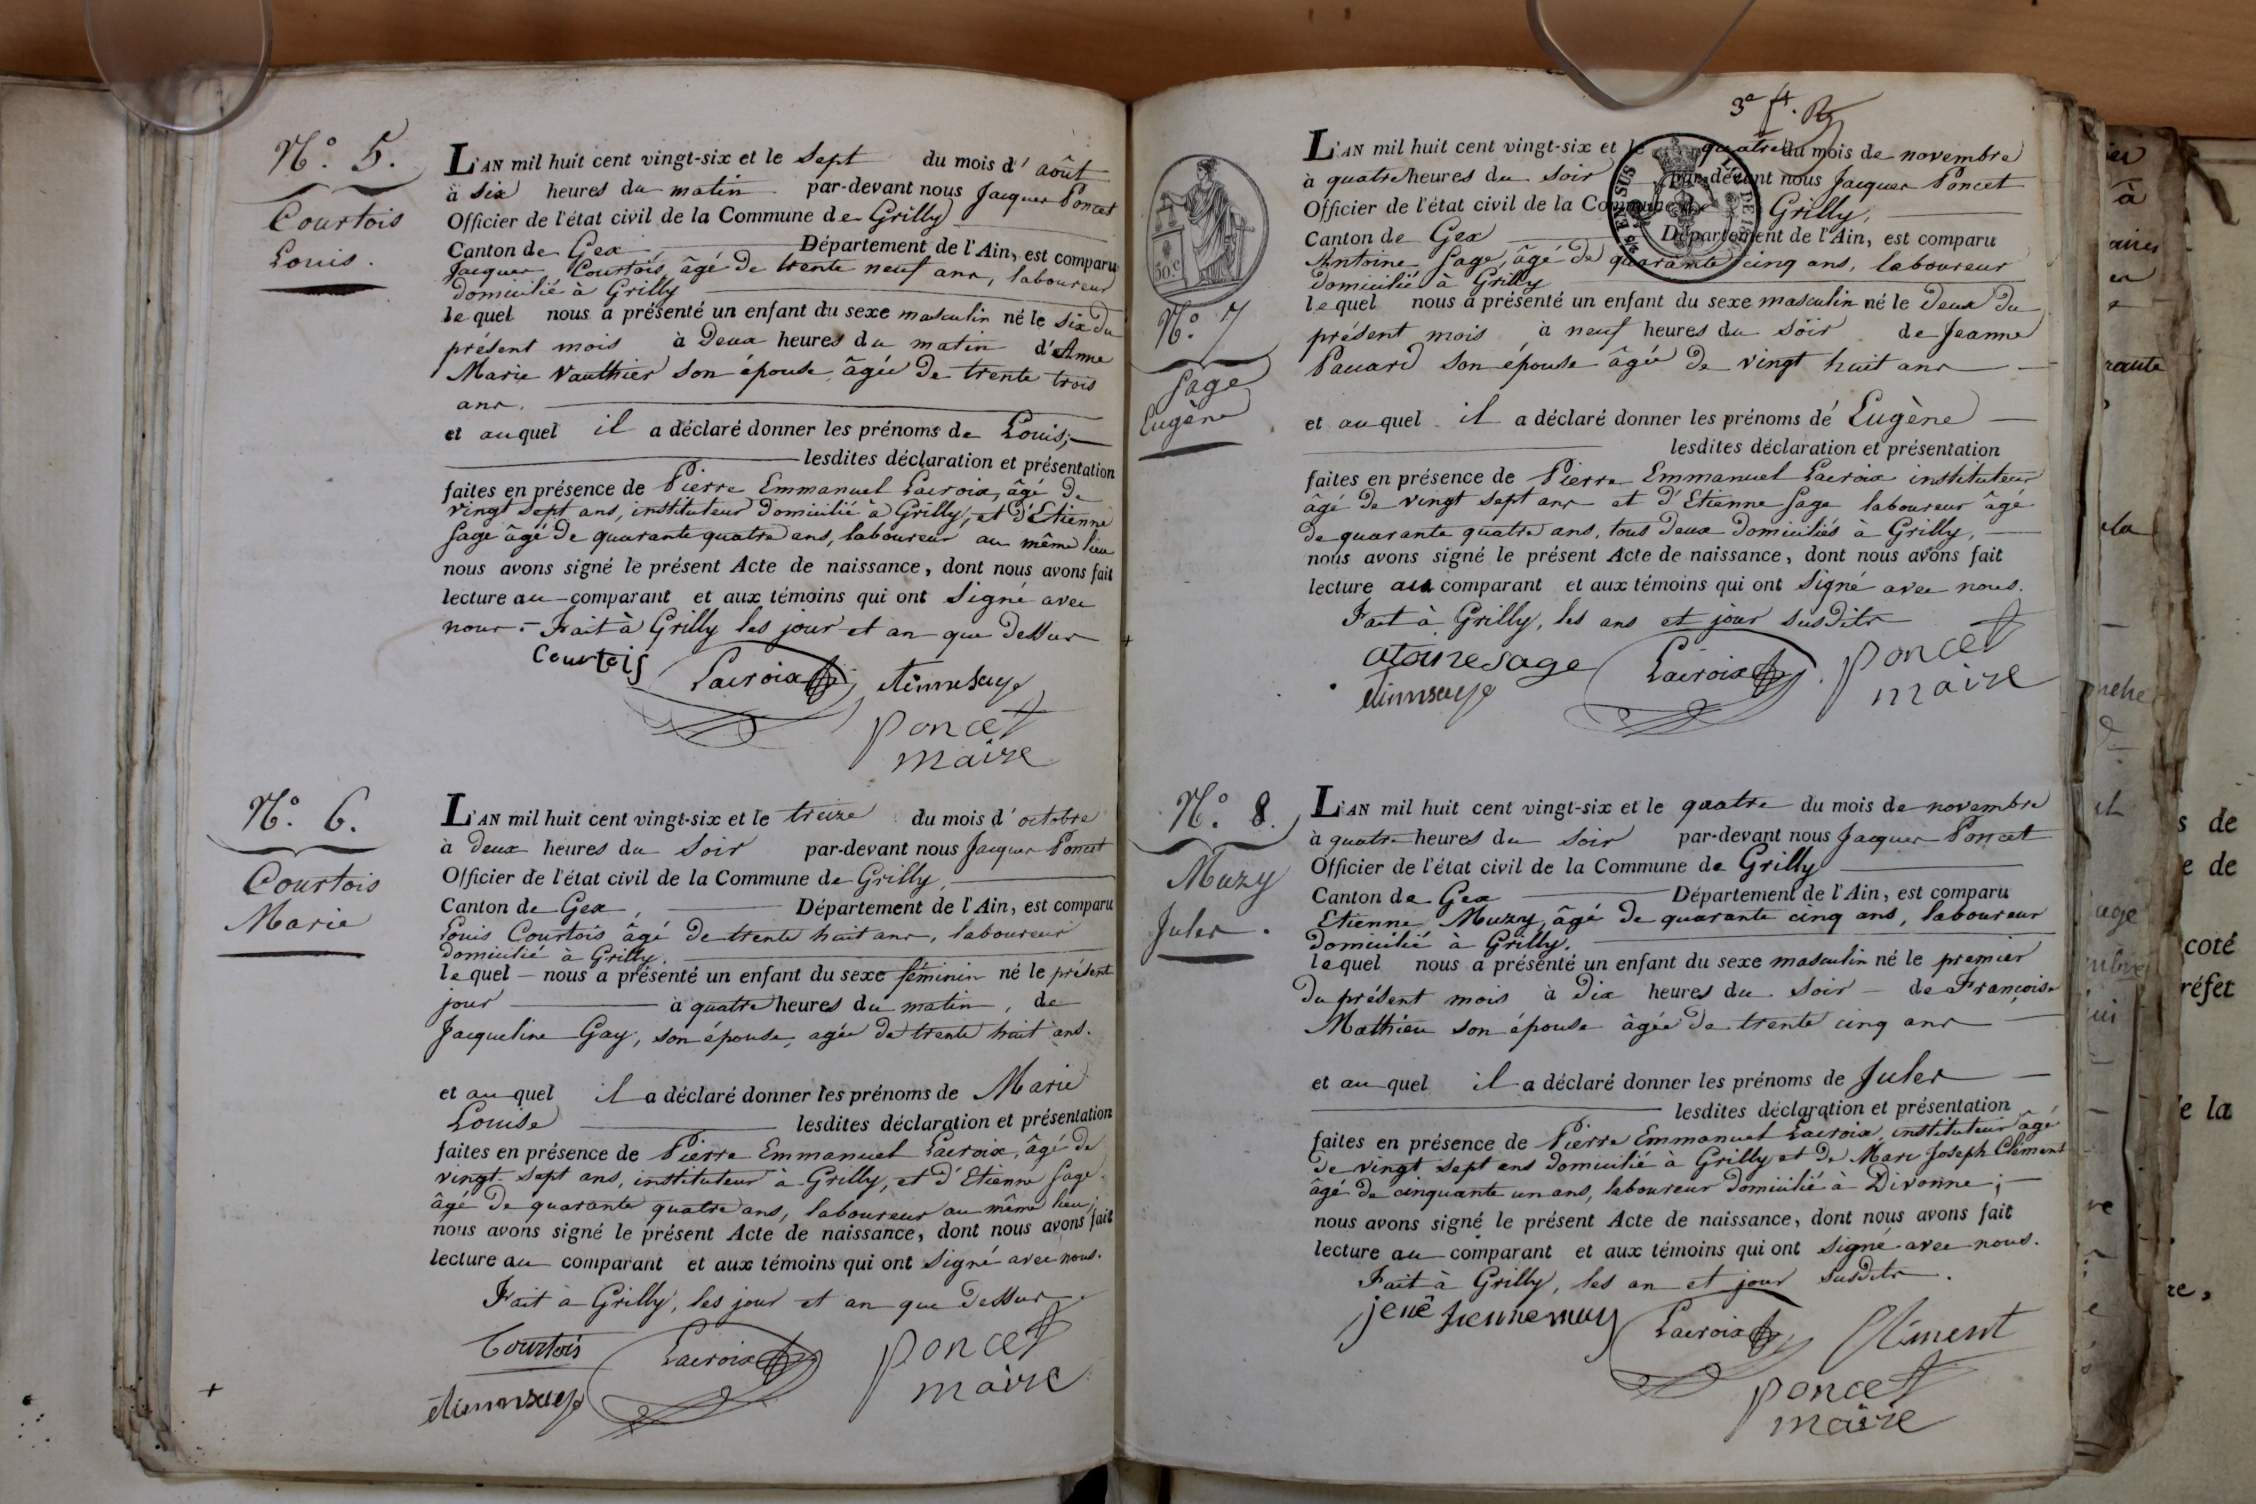 N.° 5.
Courtois
Louis.
L'AN mil huit cent vingt-six et le sept du mois d'août
à six heures du matin par-devant nous Jacques Poncet
Officier de l'état civil de la Commune de Grilly
Canton de Gex, Département de l'Ain, est comparu
Jacques Courtois, âgé de trente neuf ans, laboureur
domicilié à Grilly
lequel nous a présenté un enfant du sexe masculin né le six du
présent mois à deux heures du matin d'Anne
Marie Vauthier son épouse, âgée de trente trois
ans.
et auquel il a déclaré donner les prénoms de Louis;
lesdites déclaration et présentation
faites en présence de Pierre Emmanuel Lacroix, âgé de
vingt sept ans, instituteur domicilié à Grilly, et d'Etienne
Sage âgé de quarante quatre ans, laboureur au même lieu
nous avons signé le présent Acte de naissance, dont nous avons fait
lecture au comparant et aux témoins qui ont signé avec
nous. Fait à Grilly les jour et an que dessus
Courtois Lacroix etienne sage
poncet
maire
N.° 6.
Courtois
Marie
L'AN mil huit cent vingt-six et le treize du mois d'octobre
à deux heures du soir par-devant nous Jacques Poncet
Officier de l'état civil de la Commune de Grilly,
Canton de Gex, Département de l'Ain, est comparu
Louis Courtois âgé de trente huit ans, laboureur
domicilié à Grilly.
lequel nous a présenté un enfant du sexe féminin né le présent
jour à quatre heures du matin, de
Jacqueline Gay, son épouse, agée de trente huit ans.
et auquel il a déclaré donner les prénoms de Marie
Louise lesdites déclaration et présentation
faites en présence de Pierre Emmanuel Lacroix, âgé de
vingt-sept ans, instituteur à Grilly, et d'Etienne Sage
âgé de quarante quatre ans, laboureur au même lieu;
nous avons signé le présent Acte de naissance, dont nous avons fait
lecture au comparant et aux témoins qui ont signé avec nous.
Fait à Grilly, les jour et an que dessus.
Courtois Lacroix poncet
etienne sage maire
3e ft.
50.c
EN SUS
N.° 7
Sage
Eugène
L'AN mil huit cent vingt-six et le quatre du mois de novembre
à quatre heures du soir par-devant nous Jacques Poncet
Officier de l'état civil de la Commune de Grilly,
Canton de Gex Département de l'Ain, est comparu
Antoine Sage, âgé de quarante cinq ans, laboureur
domicilié à Grilly
lequel nous a présenté un enfant du sexe masculin né le deux du
présent mois à neuf heures du soir de Jeanne
Panard son épouse âgée de vingt huit ans
et auquel il a déclaré donner les prénoms de Eugène
lesdites déclaration et présentation
faites en présence de Pierre Emmanuel Lacroix instituteur
âgé de vingt sept ans et d'Etienne Sage laboureur âgé
de quarante quatre ans, tous deux domiciliés à Grilly,
nous avons signé le présent Acte de naissance, dont nous avons fait
lecture au comparant et aux témoins qui ont signé avec nous.
Fait à Grilly, les ans et jour susdits
atoine sage Lacroix poncet
etienne sage maire
N.° 8.
Muzy
Jules.
L'AN mil huit cent vingt-six et le quatre du mois de novembre
à quatre heures du soir par-devant nous Jacques Poncet
Officier de l'état civil de la Commune de Grilly
Canton de Gex Département de l'Ain, est comparu
Etienne Muzy, âgé de quarante cinq ans, laboureur
domicilié à Grilly.
lequel nous a présenté un enfant du sexe masculin né le premier
du présent mois à dix heures du soir de Françoise
Mathieu son épouse âgée de trente cinq ans
et auquel il a déclaré donner les prénoms de Jules
lesdites déclaration et présentation
faites en présence de Pierre Emmanuel Lacroix, instituteur âgé
de vingt sept ans domicilié à Grilly et de Marc Joseph Clément
âgé de cinquante un ans, laboureur domicilié à Divonne;
nous avons signé le présent Acte de naissance, dont nous avons fait
lecture au comparant et aux témoins qui ont signé avec nous.
Fait à Grilly, les an et jour susdits.
Lacroix Clément
poncet
maire